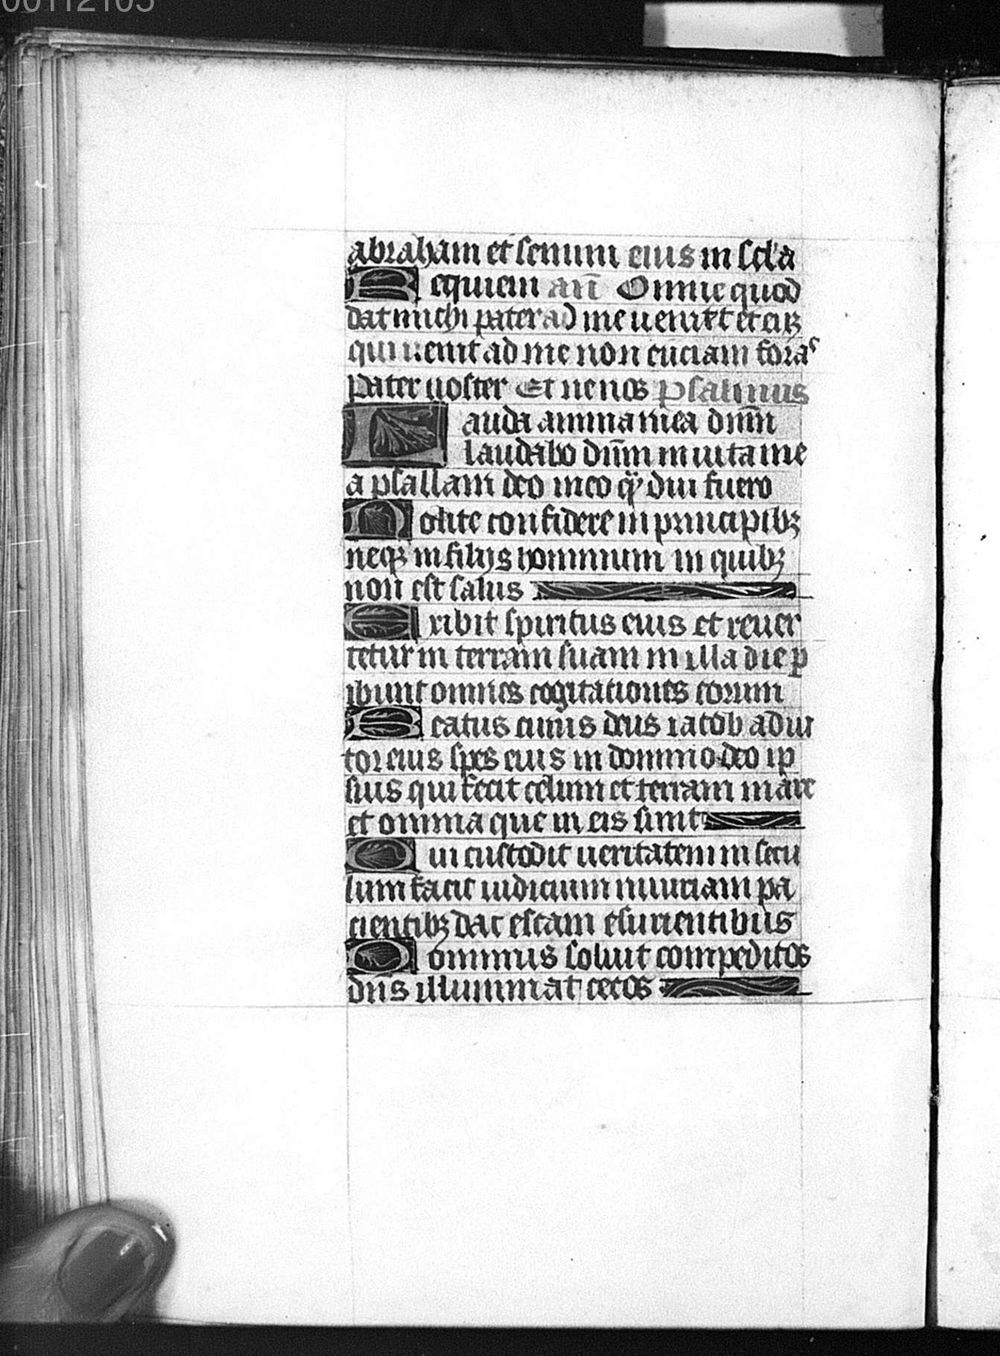 00112105
abraham et semini eius in scl'a
Requiem an̄ Omne quod
dat michi pater ad me veniet et eū
qui venit ad me non eiciam foras
Pater noster Et ne nos Psalmus
Lauda anima mea dn̄m
laudabo dn̄m in vita me
a psallam deo meo qͣdiu fuero
Nolite confidere in principibꝫ
neqꝫ in filijs hominum in quibꝫ
non est salus
Exibit spiritus eius et rever
tetur in terram suam in illa die ꝑ
ibunt omnes cogitationes eorum
Beatus cuius deus iacob adiu
tor eius spes eius in domino deo ip
sius qui fecit celum et terram mare
et omnia que in eis sunt
Qui custodit veritatem in secu
lum facit iudicium iniuriam pa
cientibꝫ dat escam esurientibus
Dominus soluit compeditos
dn̄s illuminat cecos